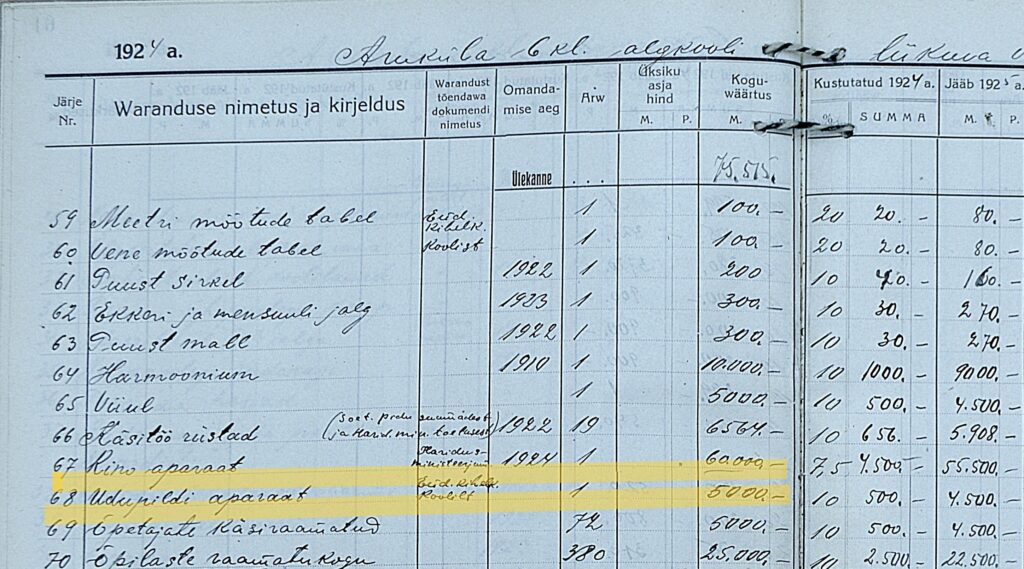 1924 a. Aruküla 6 kl. algkooli liikuva
Järje Nr. Waranduse nimetus ja kirjeldus Warandust tõendawa dokumendi nimetus Omandamise aeg Arw Üksiku asja hind M. P. Koguwäärtus M. P. Kustutatud 1924 a. % SUMMA Jääb 1925 a. M. P.
Ülekanne . . . 75.515.
59 Meetri mõõtude tabel Eud. Kihelk. 1 100.- 20 20.- 80.-
60 Vene mõõtude tabel Koolist 1 100.- 20 20.- 80.-
61 Puust sirkel 1922 1 200 10 40.- 160.-
62 Ekkeri ja mensuuli jalg 1923 1 300.- 10 30.- 270.-
63 Puust mall 1922 1 300.- 10 30.- 270.-
64 Harmoonium 1910 1 10.000.- 10 1000.- 9000.-
65 Viiul 1 5000.- 10 500.- 4.500.-
66 Käsitöö riistad 1922 19 6564.- 10 656.- 5.908.-
67 Kino aparaat Haridusministeerium 1924 1 60.000.- 7,5 4.500.- 55.500.-
68 Udupildi aparaat Eud. Kihelk. Koolilt 1 5000.- 10 500.- 4.500.-
69 Õpetajate käsiraamatud 72 5000.- 10 500.- 4.500.-
70 Õpilaste raamatukogu 380 25.000.- 10 2.500.- 22.500.-